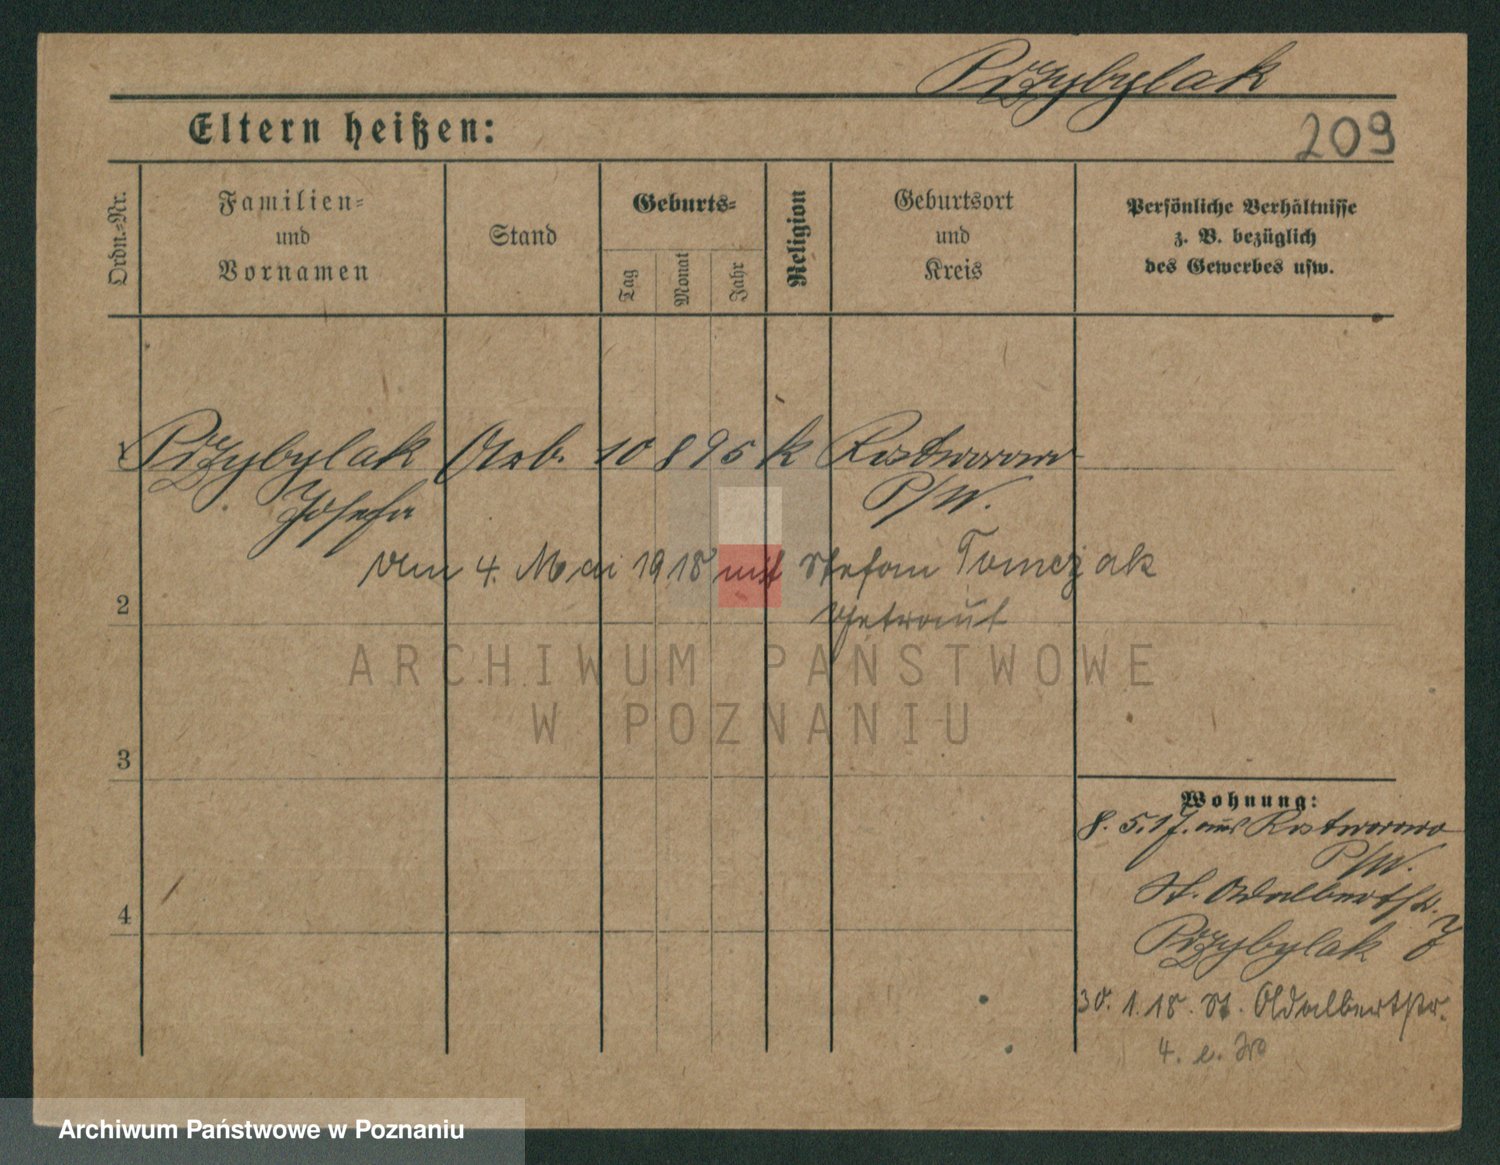 Przybylak
Eltern heißen:
209
Ordn.-Nr.
Familien-
und
Vornamen
Stand
Geburts-
Tag
Monat
Jahr
Religion
Geburtsort
und
Kreis
Persönliche Verhältnisse
z. B. bezüglich
des Gewerbes usw.
1 Przybylak Arb. 10 8 95 k Rostworowo
Josefa P/W.
Am 4. Mai 1918 mit Stefan Tomczak
2
getraut
ARCHIWUM PAŃSTWOWE
W POZNANIU
3
Wohnung:
8. 5. 17. aus Rostworowo
P/W.
St. Adalbertstr. 7
Przybylak
4
30. 1. 18. St. Adalbertstr.
4.
Archiwum Państwowe w Poznaniu